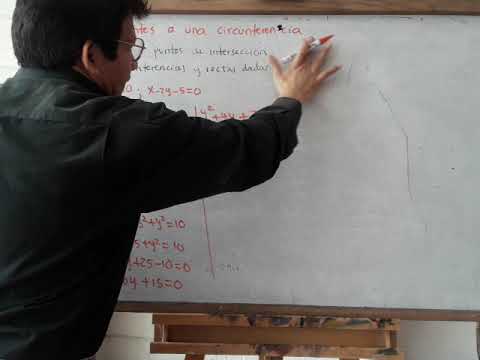 a una circunferencia
puntos de intersección
y rectas dadas
x-2y-5=0
y²+4y+
²+y²=10
5+y²=10
+25-10=0
y+15=0